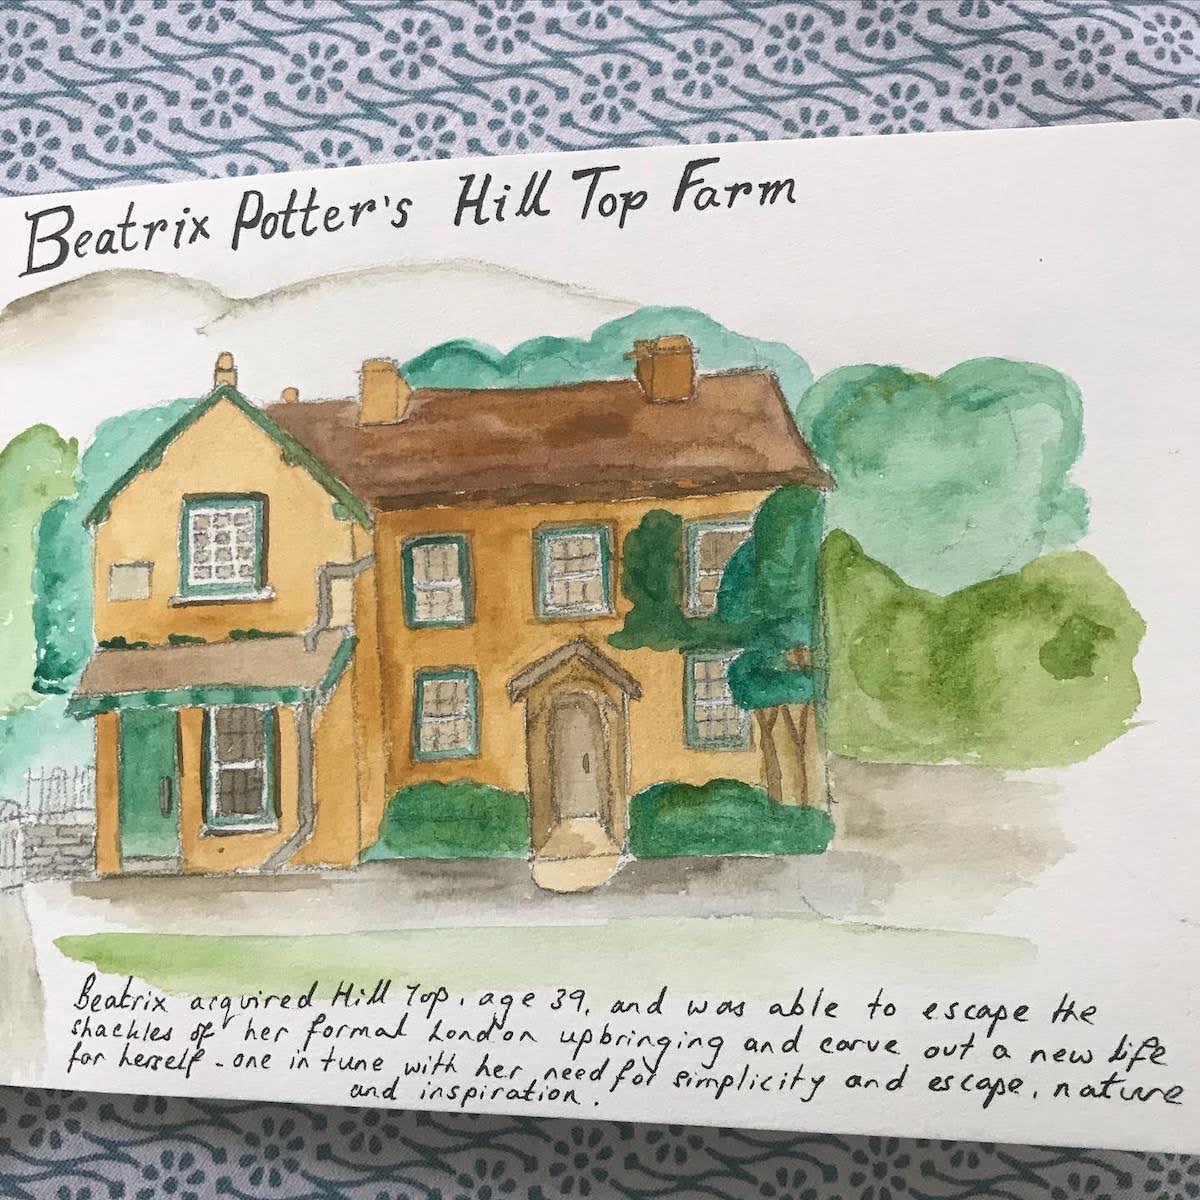 Beatrix Potter's Hill Top Farm
Beatrix acquired Hill Top, age 39, and was able to escape the
shackles of her formal London upbringing and carve out a new life
for herself - one in tune with her need for simplicity and escape, nature
and inspiration.